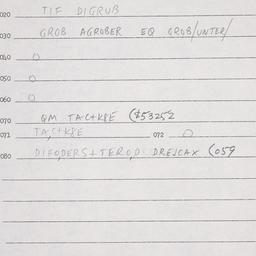 020 TIF DIGRUB
030 GROB AGROBER EQ GROB/UNTER/
040 O
050 O
060 O
070 QM TACTKBE ($53252
071 TACTKBE 072 O
080 DIFODERS+TEROD DREJCAX (059